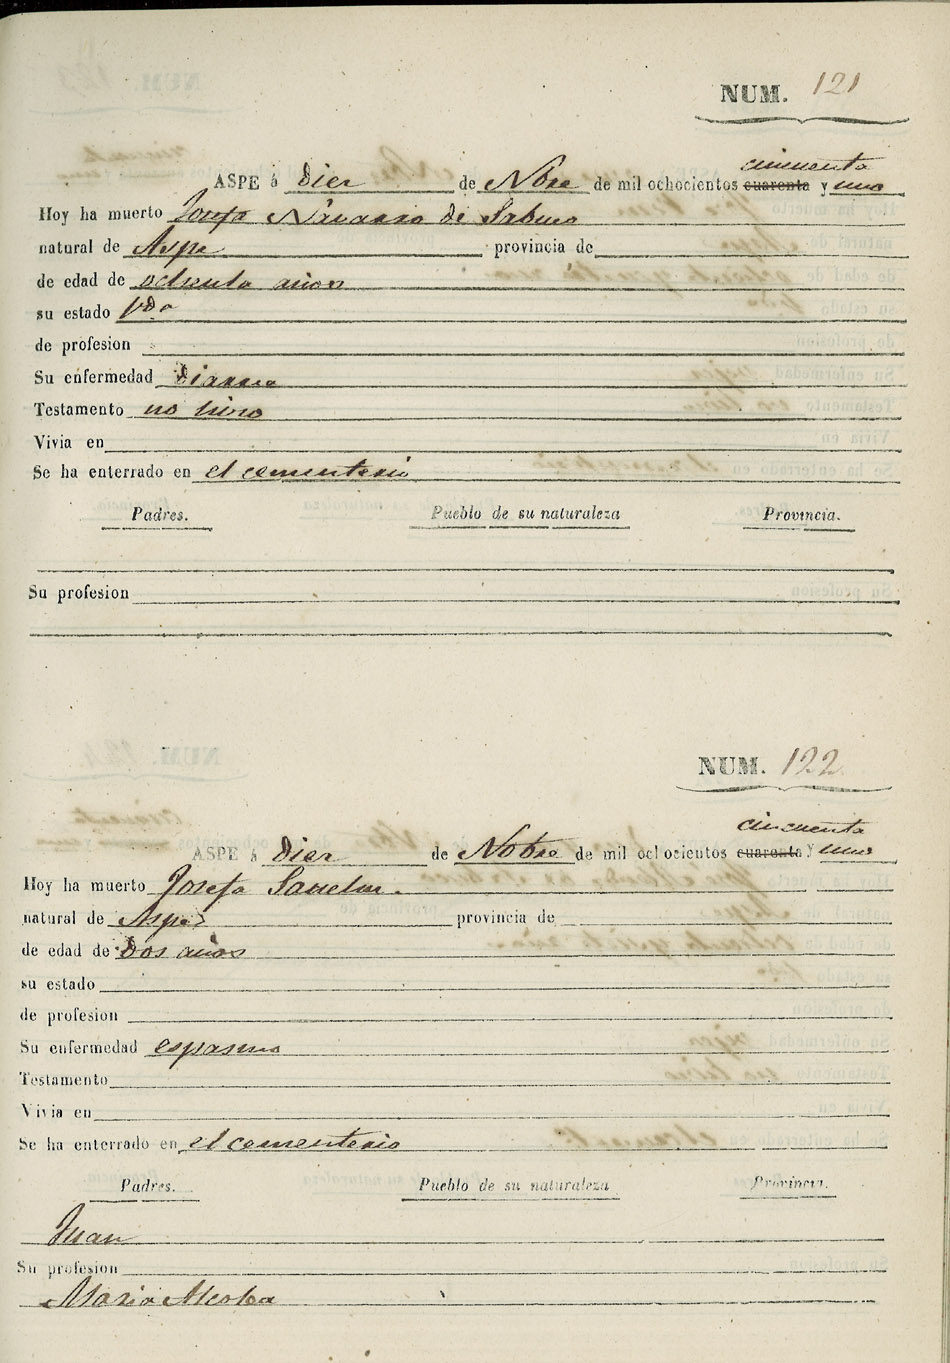 NUM. 121
cincuenta
ASPE á diez de Nobre de mil ochocientos cuarenta y uno
Hoy ha muerto Josefa Navarro de Sabino
natural de Aspe provincia de
de edad de ochenta años
su estado Vda
de profesion
Su enfermedad Diarrea
Testamento no hizo
Vivia en
Se ha enterrado en el cementerio
Padres. Pueblo de su naturaleza Provincia.
Su profesion
NUM. 122
cincuenta
ASPE á diez de Nobre de mil ochocientos cuarenta y uno
Hoy ha muerto Josefa
natural de Aspe provincia de
de edad de Dos años
su estado
de profesion
Su enfermedad espasmo
Testamento
Vivia en
Se ha enterrado en el cementerio
Padres. Pueblo de su naturaleza Provincia.
Juan
Su profesion
Maria Alcolea